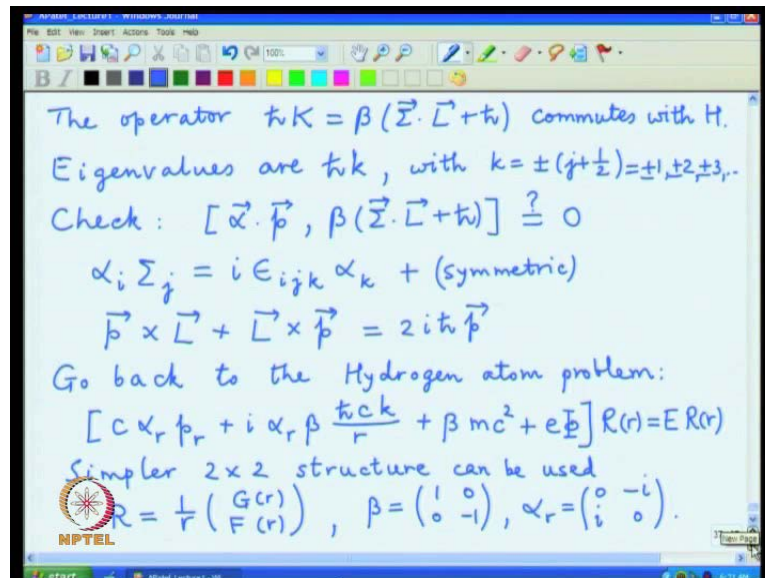 APatel_Lecture1 - Windows Journal
File Edit View Insert Actions Tools Help
100%
B I
The operator ℏK = β(Σ⃗·L⃗+ℏ) commutes with H.
Eigenvalues are ℏk, with k = ±(j+½) = ±1,±2,±3,..
Check : [α⃗·p⃗, β(Σ⃗·L⃗+ℏ)] ≟ 0
αᵢ Σⱼ = i ϵᵢⱼₖ αₖ + (symmetric)
p⃗ × L⃗ + L⃗ × p⃗ = 2iℏp⃗
Go back to the Hydrogen atom problem:
[c αᵣ pᵣ + i αᵣ β ℏck/r + β mc² + eΦ] R(r) = E R(r)
Simpler 2×2 structure can be used
R = 1/r (G(r) F(r)), β = (1 0 0 -1), αᵣ = (0 -i i 0).
NPTEL
New Page
start